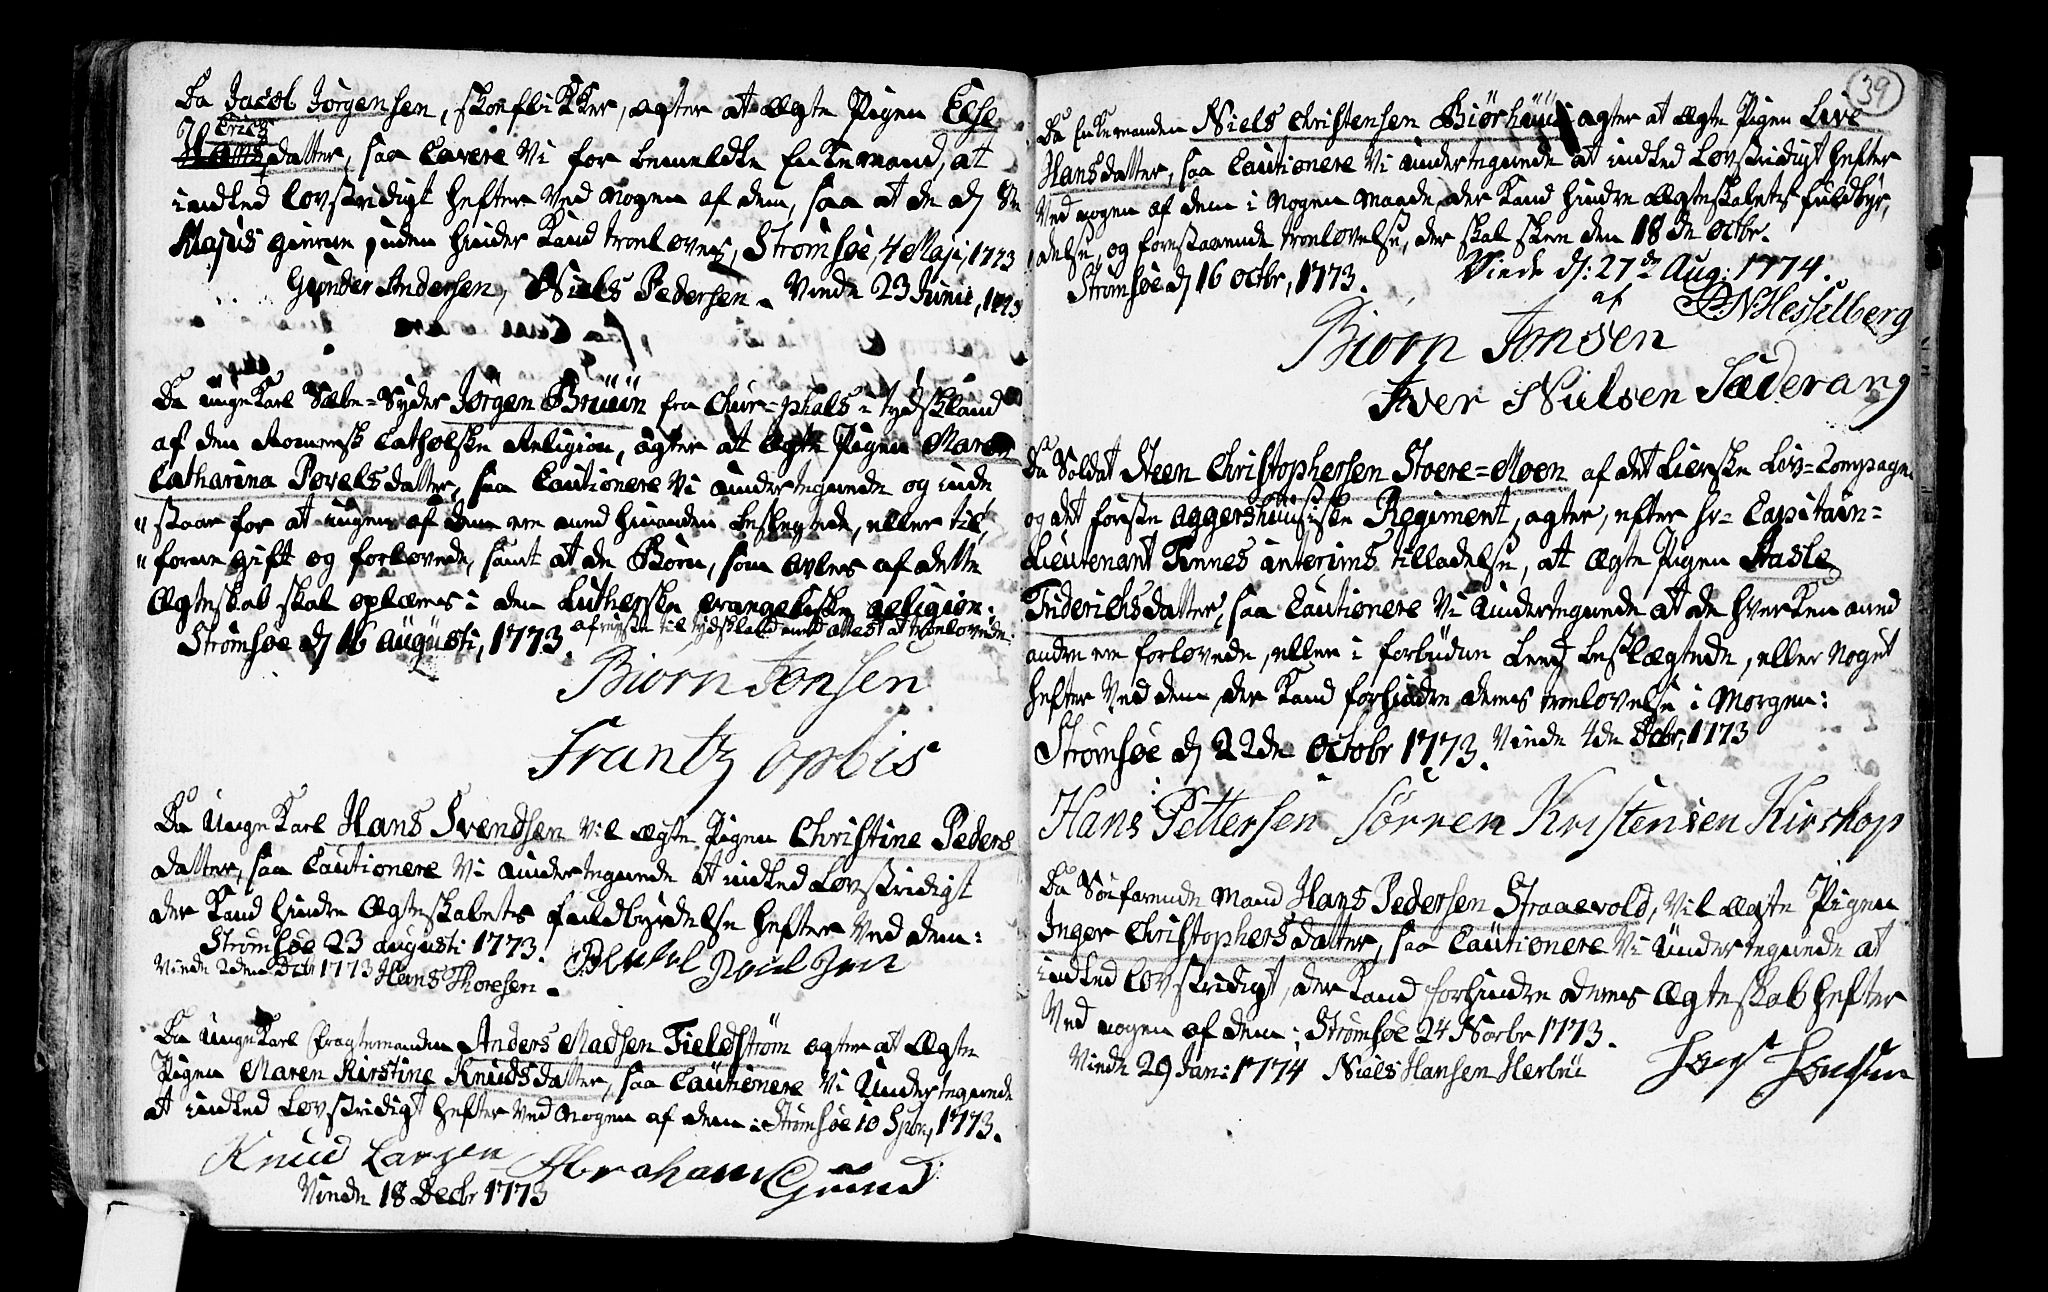 Da Jacob Jørgensen, skoeflikker, agter at ægte Pigen Else
Erics
Hans datter, saa Cavere Vi for bemeldte Enkemand, at
intted lovstridigt hefter ved nogen af dem, saa at de d
Majus uden hinder kand troeloves, Strømsøe, 4 Maji, 1773
Gunder Andersen, Niels Pedersen. Viede 23 Junii, 1773
Da unge Karl Sæbe=Syder Jørgen Bruun fra Chur=phals i tydskland
af den Romersk Catholske Religion, agter at ægte Pigen Maren
Catharina Povels datter, saa Cautionere Vi undertegnede og inde
staar for at ingen af dem ere med hinanden beslegtede, eller til
forne gift og forlovede, samt at de Børn, som avles af dette
Ægteskab skal oplæres i den Lutherske evangeliske religion:
Strømsøe d 16 Augusti, 1773.
Biørn Jonsen
Frantz opbis
Da Unge Karl Hans Svendsen vil ægte Pigen Christine Peders
datter, saa Cautionere Vi undertegnede at intted Lovstridigt
der kand hindre Ægteskabets fuldbyrdelse hefter ved dem:
Strømsøe 23 augusti 1773.
Viede 2den 1773 Hans Thoresen.
Da Unge Karl fragtemanden Anders Madsen Fieldstrøm agter at ægte
Pigen Maren Kirstine Knuds datter, saa Cautionere Vi Undertegnede
at intted Lovstridigt hefter ved nogen af dem: Strømsøe 10 Sptbr, 1773.
Knud Larsen Abraham Gund
Viede 18 Decbr 1773
39
Da Enkemanden Niels Christensen agter at ægte Pigen Live
Hans datter, saa Cautionere Vi undertegnede at intted Lovstridigt hefter
ved nogen af dem i nogen maade, der kand hindre ægteskabets fuldbyr,
delse, og forestaaende troelovelse, der skal skee den 18de octbr.
Strømsøe d 16 octbr, 1773. Viede d: 27de Aug: 1774.
af PNHesselberg
Biørn Jonsen
Iver Nielsen Sæderang
Da Soldat Steen Christophersen Stoere=Moen af det Lierske Liv=Compagn.
og det første Aggershuusiske Regiment, agter, efter hr= Capitain=
Lieutenant Finnes interims tilladelse, at ægte Pigen Aasle
Friderichs datter, saa Cautionere Vi Undertegnede at de hverken med
andre ere forlovede, eller i forbuden Leed beslægtede, eller noget
hefter ved dem, der kand forhindre deres troelovelse i Morgen:
Strømsøe d 22de Octobr 1773. Viede 4de 1773
Hans Pettersen Sørren Kristensen Kirskop
Da Søefarende Mand Hans Pedersen Straaevold, vil ægte Pigen
Inger Christophers datter, saa Cautionere Vi Undertegnede at
intted lovstridigt, der kand forhindre deres Ægteskab hefter
ved nogen af dem; Strømsøe 24 Novbr 1773.
Viede 29 Jan: 1774 Niels Hansen